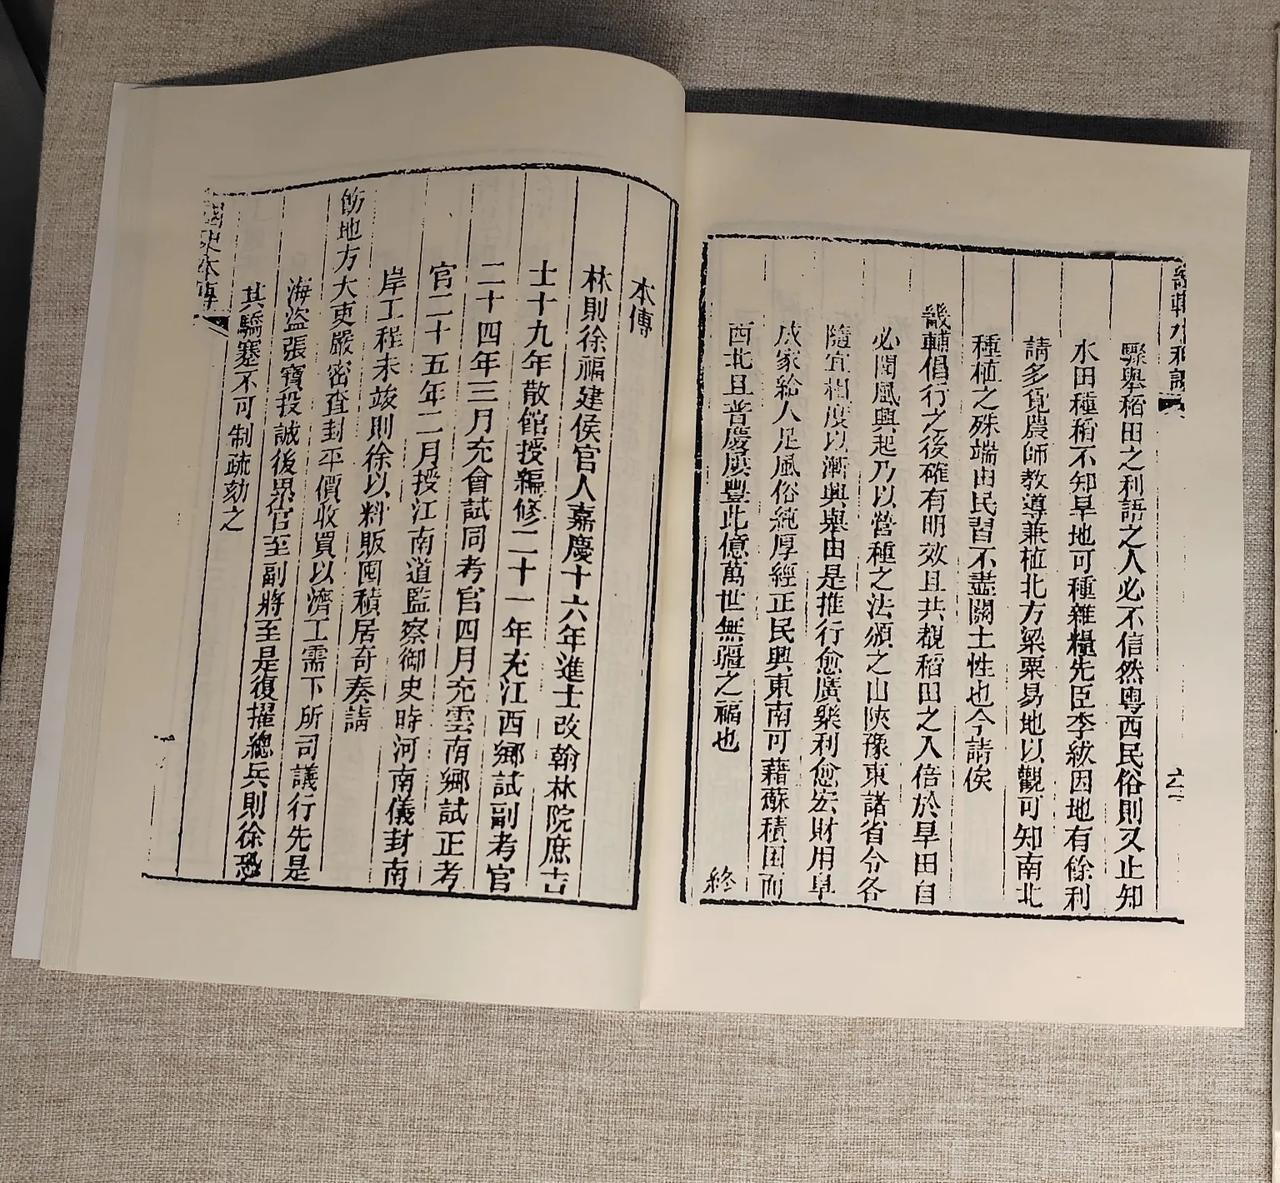 畿輔水利議
驟舉稻田之利語之人必不信然粵西民俗則又止知
水田種稻不知旱地可種雜糧先臣李紱因地有餘利
請多覓農師教導兼植北方粱粟易地以觀可知南北
種植之殊端由民習不盡關土性也今請俟
畿輔倡行之後確有明效且共覩稻田之入倍於旱田自
必聞風興起乃以營種之法頒之山陝豫東諸省令各
隨宜相度以漸興舉由是推行愈廣樂利愈宏財用阜
成家給人足風俗純厚經正民興東南可藉蘇積困而
西北且普慶屢豐此億萬世無疆之福也
終
本傳
林則徐福建侯官人嘉慶十六年進士改翰林院庶吉
士十九年散館授編修二十一年充江西鄉試副考官
二十四年三月充會試同考官四月充雲南鄉試正考
官二十五年二月授江南道監察御史時河南儀封南
岸工程未竣則徐以料販囤積居奇奏請
飭地方大吏嚴密查封平價收買以濟工需下所司議行先是
海盜張寶投誠後累官至副將至是復擢總兵則徐恐
其驕蹇不可制疏劾之
國史本傳